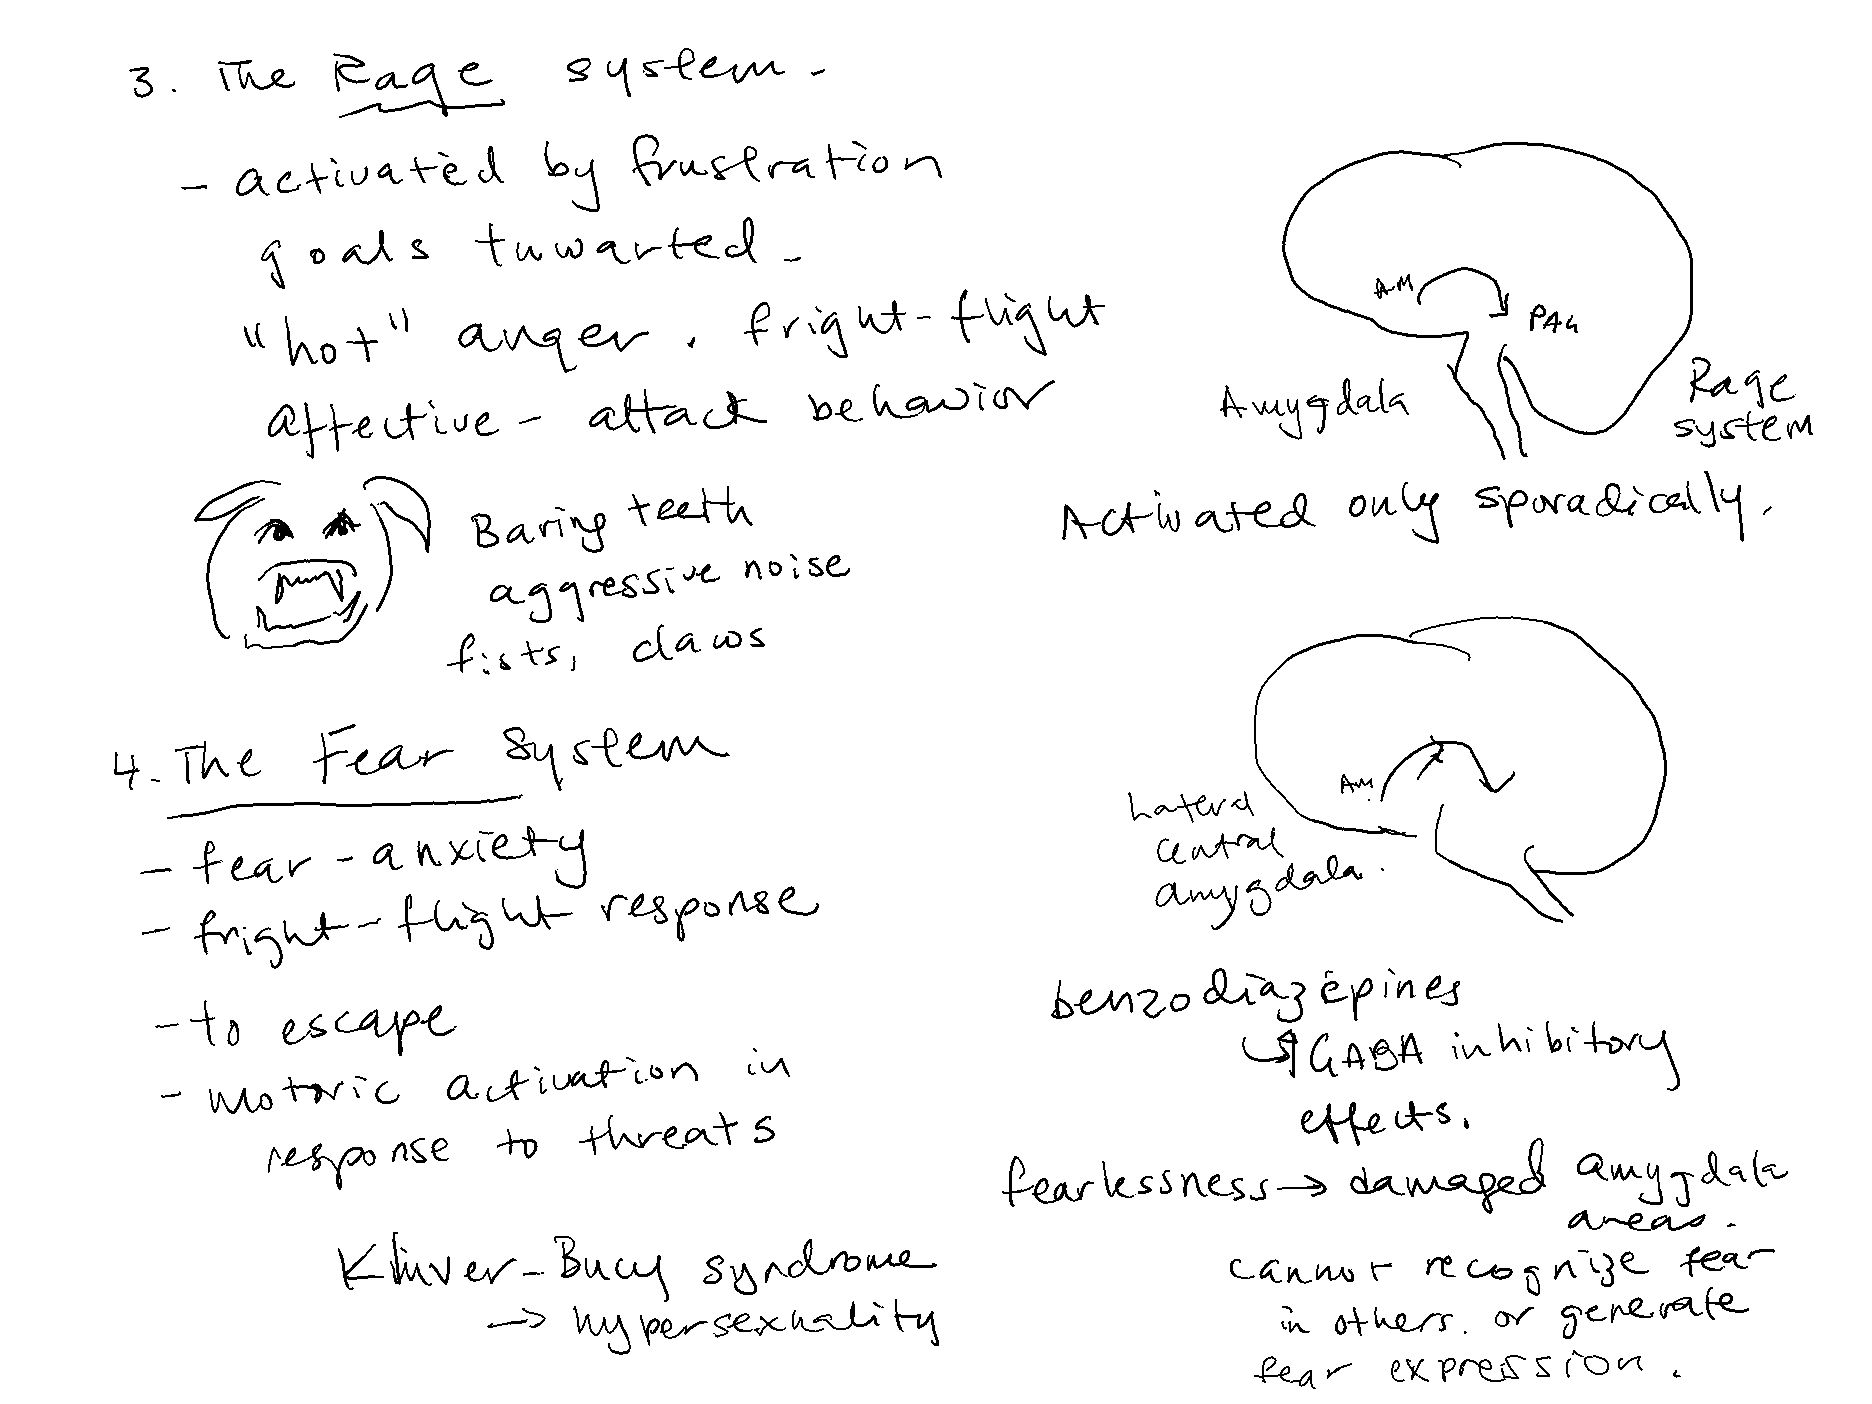 3. The Rage system -
- activated by frustration
goals tuwarted -
"hot" anger. fright-flight
affective - attack behavior
Baring teeth
aggressive noise
fists, claws
AM
PAG
Amygdala
Rage
system
Activated only sporadically.
4. The Fear System
- fear - anxiety
- fright-flight response
- to escape
- motoric activation in
response to threats
Klüver-Bucy syndrome
→ hypersexuality
AM
Lateral
central
amygdala.
benzodiazepines
↳↑GABA inhibitory
effects.
fearlessness → damaged amygdala
areas.
cannot recognize fear
in others. or generate
fear expression.